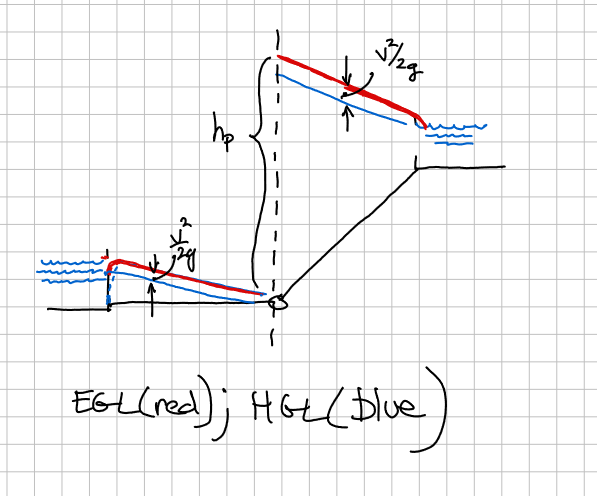 V²/2g
hp
V²/2g
EGL(red); HGL(blue)